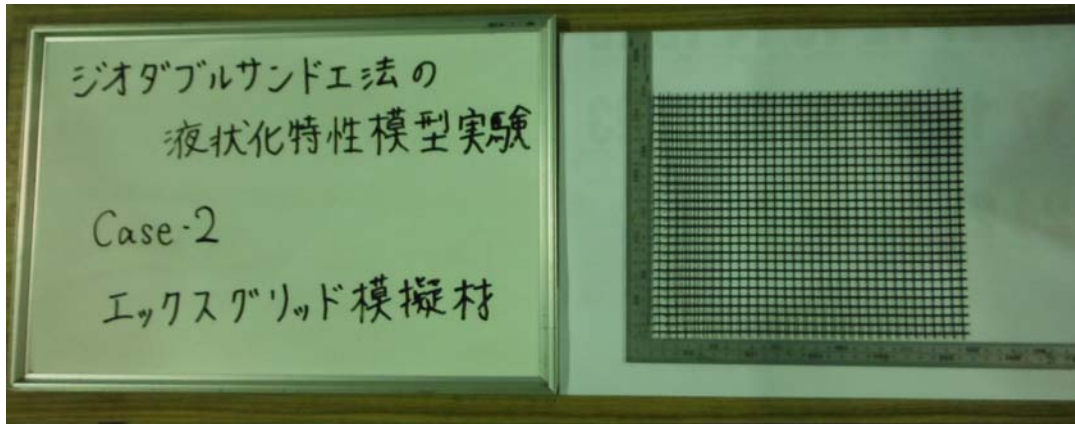 ジオダブルサンド工法の
液状化特性模型実験
Case-2
エックスグリッド模擬材